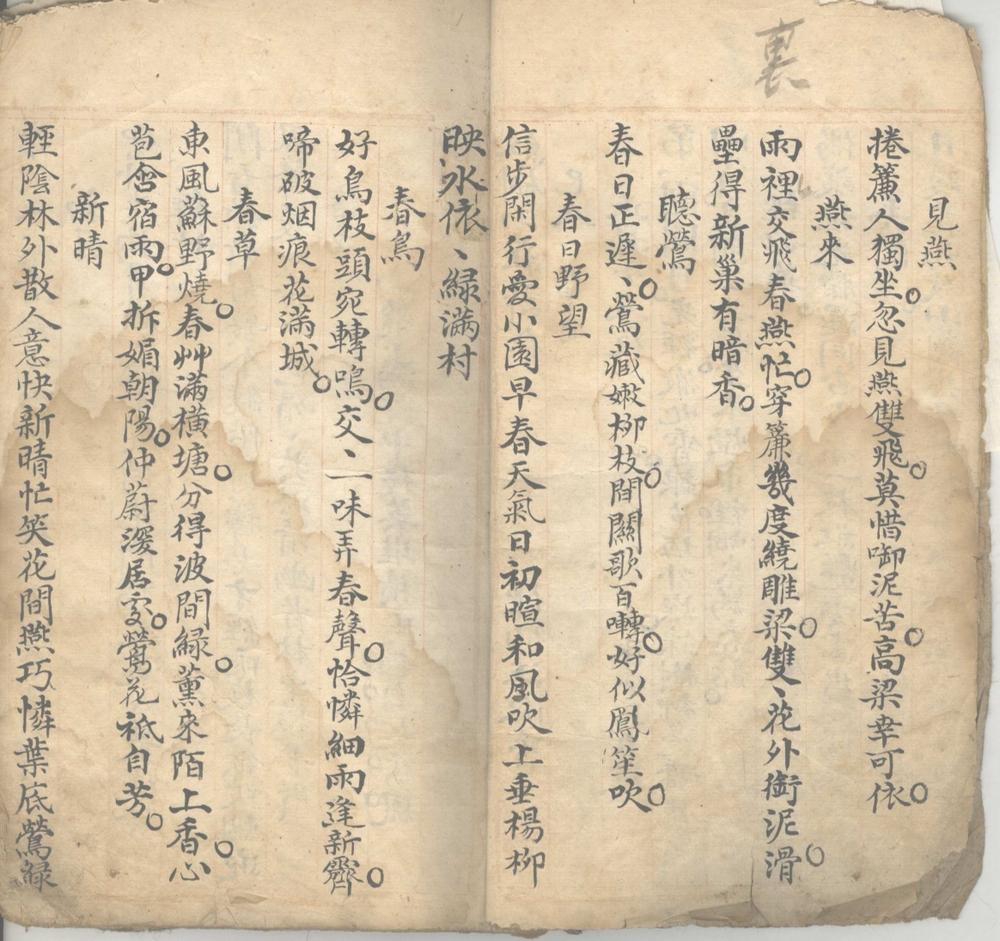 裏
見燕
捲簾人獨坐忽見燕雙飛莫惜啣泥苦高梁幸可依
燕來
雨裡交飛春燕忙穿簾幾度繞雕梁雙丶花外銜泥滑
壘得新巢有暗香
聽鶯
春日正遲丶鶯藏嫩柳枝間關歌百囀好似鳳笙吹
春日野望
信步閑行愛小園早春天氣日初暄和風吹上垂楊柳
映水依丶綠滿村
春鳥
好鳥枝頭宛轉鳴交丶一味弄春聲恰憐細雨逢新霽
啼破烟痕花滿城
春草
東風蘇野燒春艸滿橫塘分得波間綠薰來陌上香心
苞含宿雨甲拆媚朝陽仲蔚深居處鶯花祗自芳
新晴
輕陰林外散人意快新晴忙笑花間燕巧憐葉底鶯綠